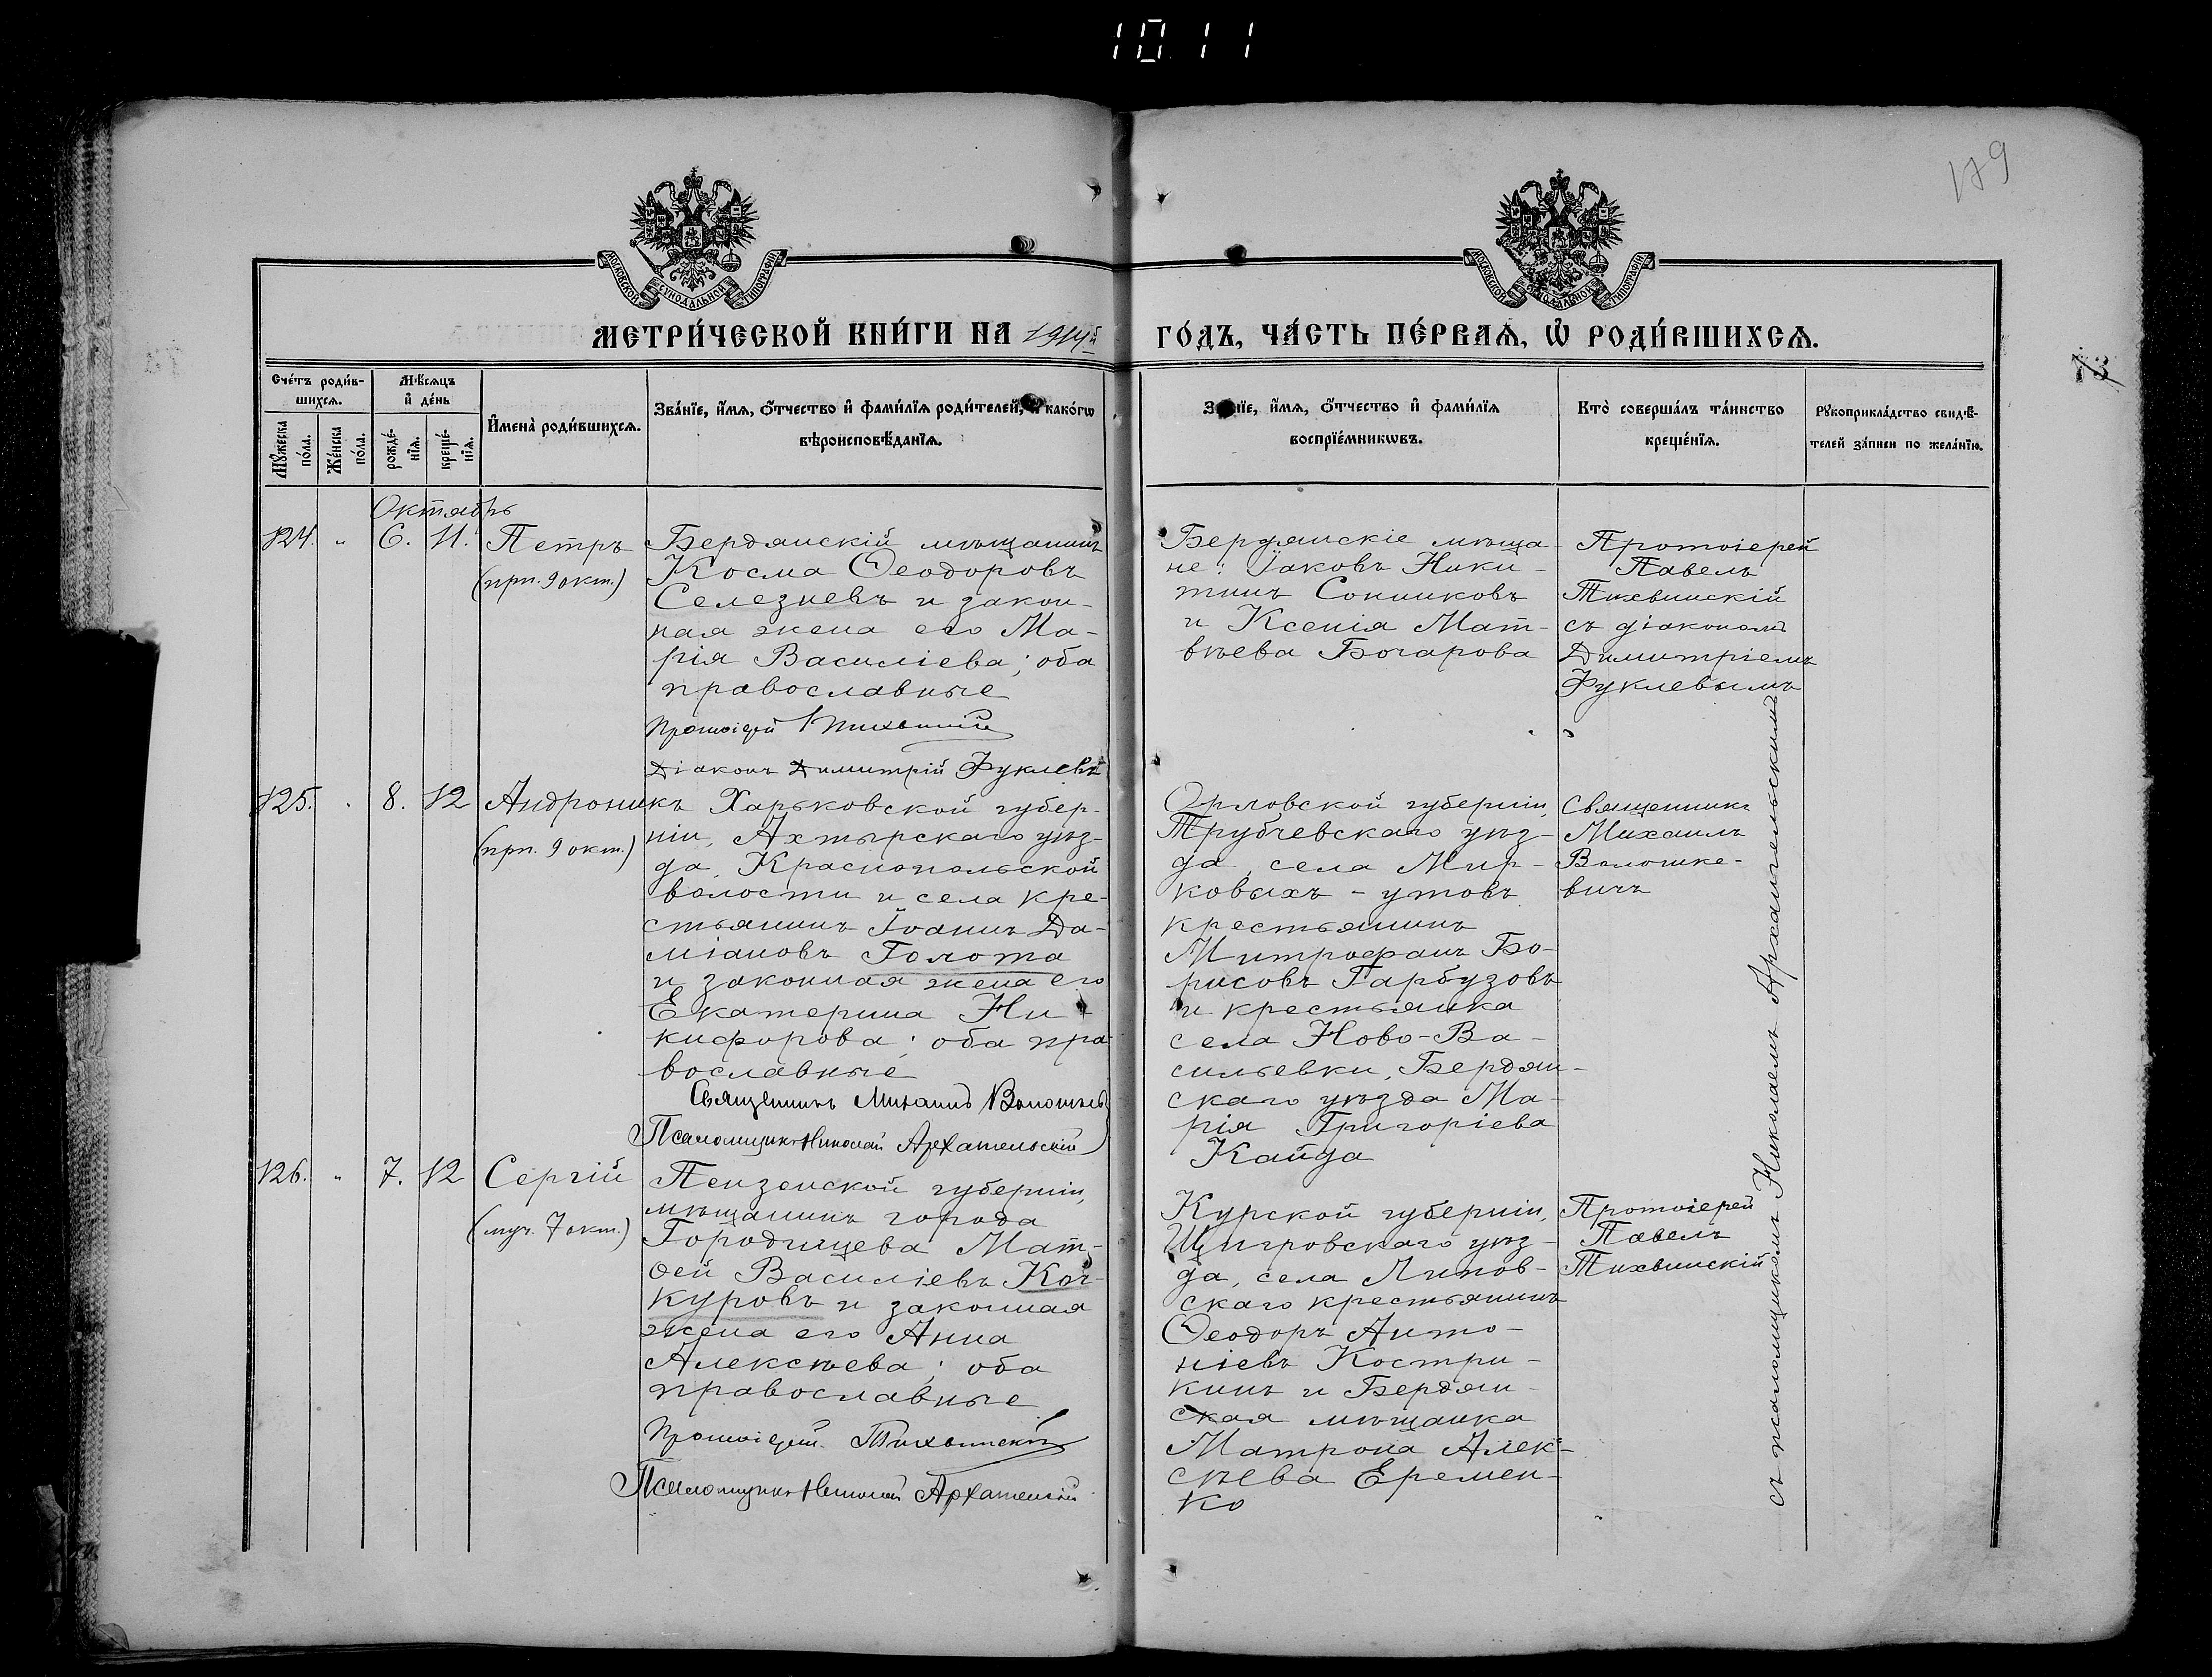 1011
179
МОСКОВСКОЙ СУНОДАЛЬНОЙ ТИПОГРАФІИ
МОСКОВСКОЙ СУНОДАЛЬНОЙ ТИПОГРАФІИ
МЕТРИ́ЧЕСКОЙ КНИ́ГИ НА 1914й ГО́ДЪ, ЧА́СТЬ ПЕ́РВАѦ, Ѡ҆ РОДИ́ВШИХСѦ.
73
Счéтъ роди́в-
шихсѧ.
Мꙋ́жеска по́ла.
Же́нска по́ла.
Мѣ́сѧцъ
и҆ де́нь
рожде́-
нїѧ.
креще́-
нїѧ.
И҆мена̀ роди́вшихсѧ.
Зва́нїе, и҆́мѧ, ѻ҆́тчество и҆ фами́лїѧ роди́телей, и҆ како́гѡ
вѣроисповѣ́данїѧ.
Зва́нїе, и҆́мѧ, ѻ҆́тчество и҆ фами́лїѧ
воспрїе́мникѡвъ.
Кто̀ соверша́лъ та́инство
креще́нїѧ.
Рꙋкоприкла́дство свидѣ́-
телей за́писи по жела́нїю.
Октябрь
124. " 6. 11. Петръ
(прп. 9 окт.)
Бердянскій мѣщанинъ
Косма Ѳеодоровъ
Селезневъ и закон-
ная жена его Ма-
рія Василіева; оба
православные
Протоіерей П Тихвинскій
Діаконъ Димитрій Фуклевъ
Бердянскіе мѣща-
не: Іаковъ Ники-
тинъ Сонниковъ
и Ксенія Мат-
вѣева Бочарова
Протоіерей
Павелъ
Тихвинскій
съ діакономъ
Димитріемъ
Фуклевымъ
125. " 8. 12 Андроникъ
(прп. 9 окт.)
Харьковской губер-
ніи, Ахтырскаго уѣз-
да, Краснопольской
волости и села кре-
стьянинъ Іоаннъ Да-
міановъ Голота
и законная жена его
Екатерина Ни-
кифорова; оба пра-
вославные
Священникъ Михаилъ Волошкев
Псаломщикъ Николай Архангельскій
Орловской губерніи,
Трубчевскаго уѣз-
да, села Мир-
ковыхъ-утовъ
крестьянинъ
Митрофанъ Бо-
рисовъ Гарбузовъ
и крестьянка
села Ново-Ва-
сильевки, Бердян-
скаго уѣзда Ма-
рія Григоріева
Кайда
Священникъ
Михаилъ
Волошке-
вичъ
126. " 7. 12 Сергій
(муч. 7 окт.)
Пензенской губерніи,
мѣщанинъ города
Городищева Мат-
ѳей Василіевъ Коч-
куровъ и законная
жена его Анна
Алексѣева; оба
православные
Протоіерей Тихвинскій
Псаломщикъ Николай Архангельскій
Курской губерніи,
Щигровскаго уѣз-
да, села Липов-
скаго крестьянинъ
Ѳеодоръ Анто-
ніевъ Костри-
кинъ и Бердян-
ская мѣщанка
Матрона Алек-
сѣева Еремен-
ко
Протоіерей
Павелъ
Тихвинскій
съ псаломщикомъ Николаемъ Архангельскимъ